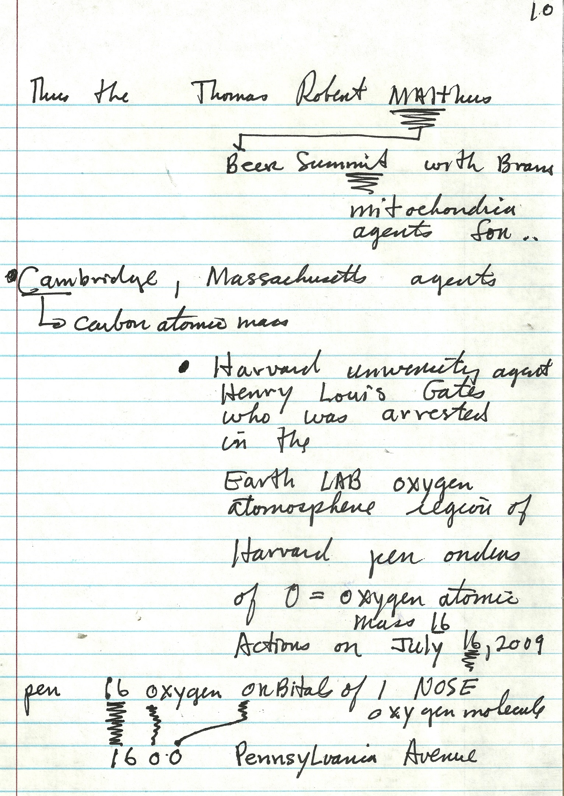 10
Thus the Thomas Robert MAlthus
Beer Summit with Brain
mitochondria
agents son ..
• Cambridge, Massachusetts agents
carbon atomic mass
• Harvard university agent
Henry Louis Gates
who was arrested
in the
Earth LAB oxygen
atomosphere region of
Harvard pen orders
of O = oxygen atomic
mass 16
Actions on July 16, 2009
pen 16 oxygen orBitals of 1 NOSE
oxygen molecule
16 0 0 Pennsylvania Avenue